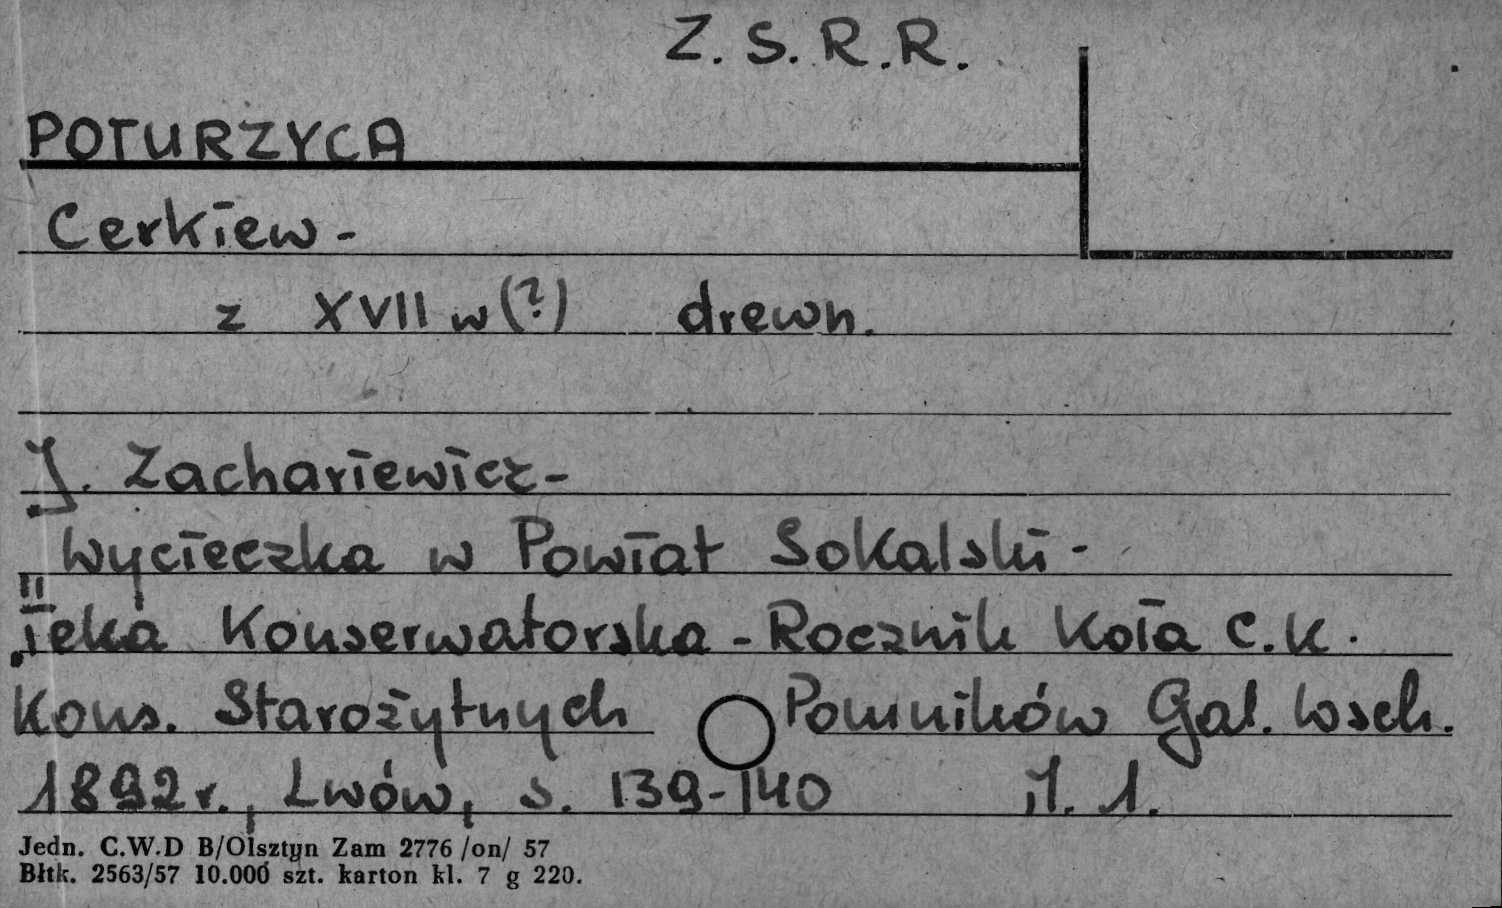 Z.S.R.R.
POTURZYCA
Cerkiew -
z XVII w (?) drewn.
J. Zachariewicz -
Wycieczka w Powiat Sokalski -
Teka Konserwatorska - Rocznik Koła C.K.
Kons. Starożytnych Pomników Gal. Wsch.
II
1892 r., Lwów, s. 139-140 il. 1.
Jedn. C.W.D B/Olsztyn Zam 2776 /on/ 57
Błtk. 2563/57 10.000 szt. karton kl. 7 g 220.